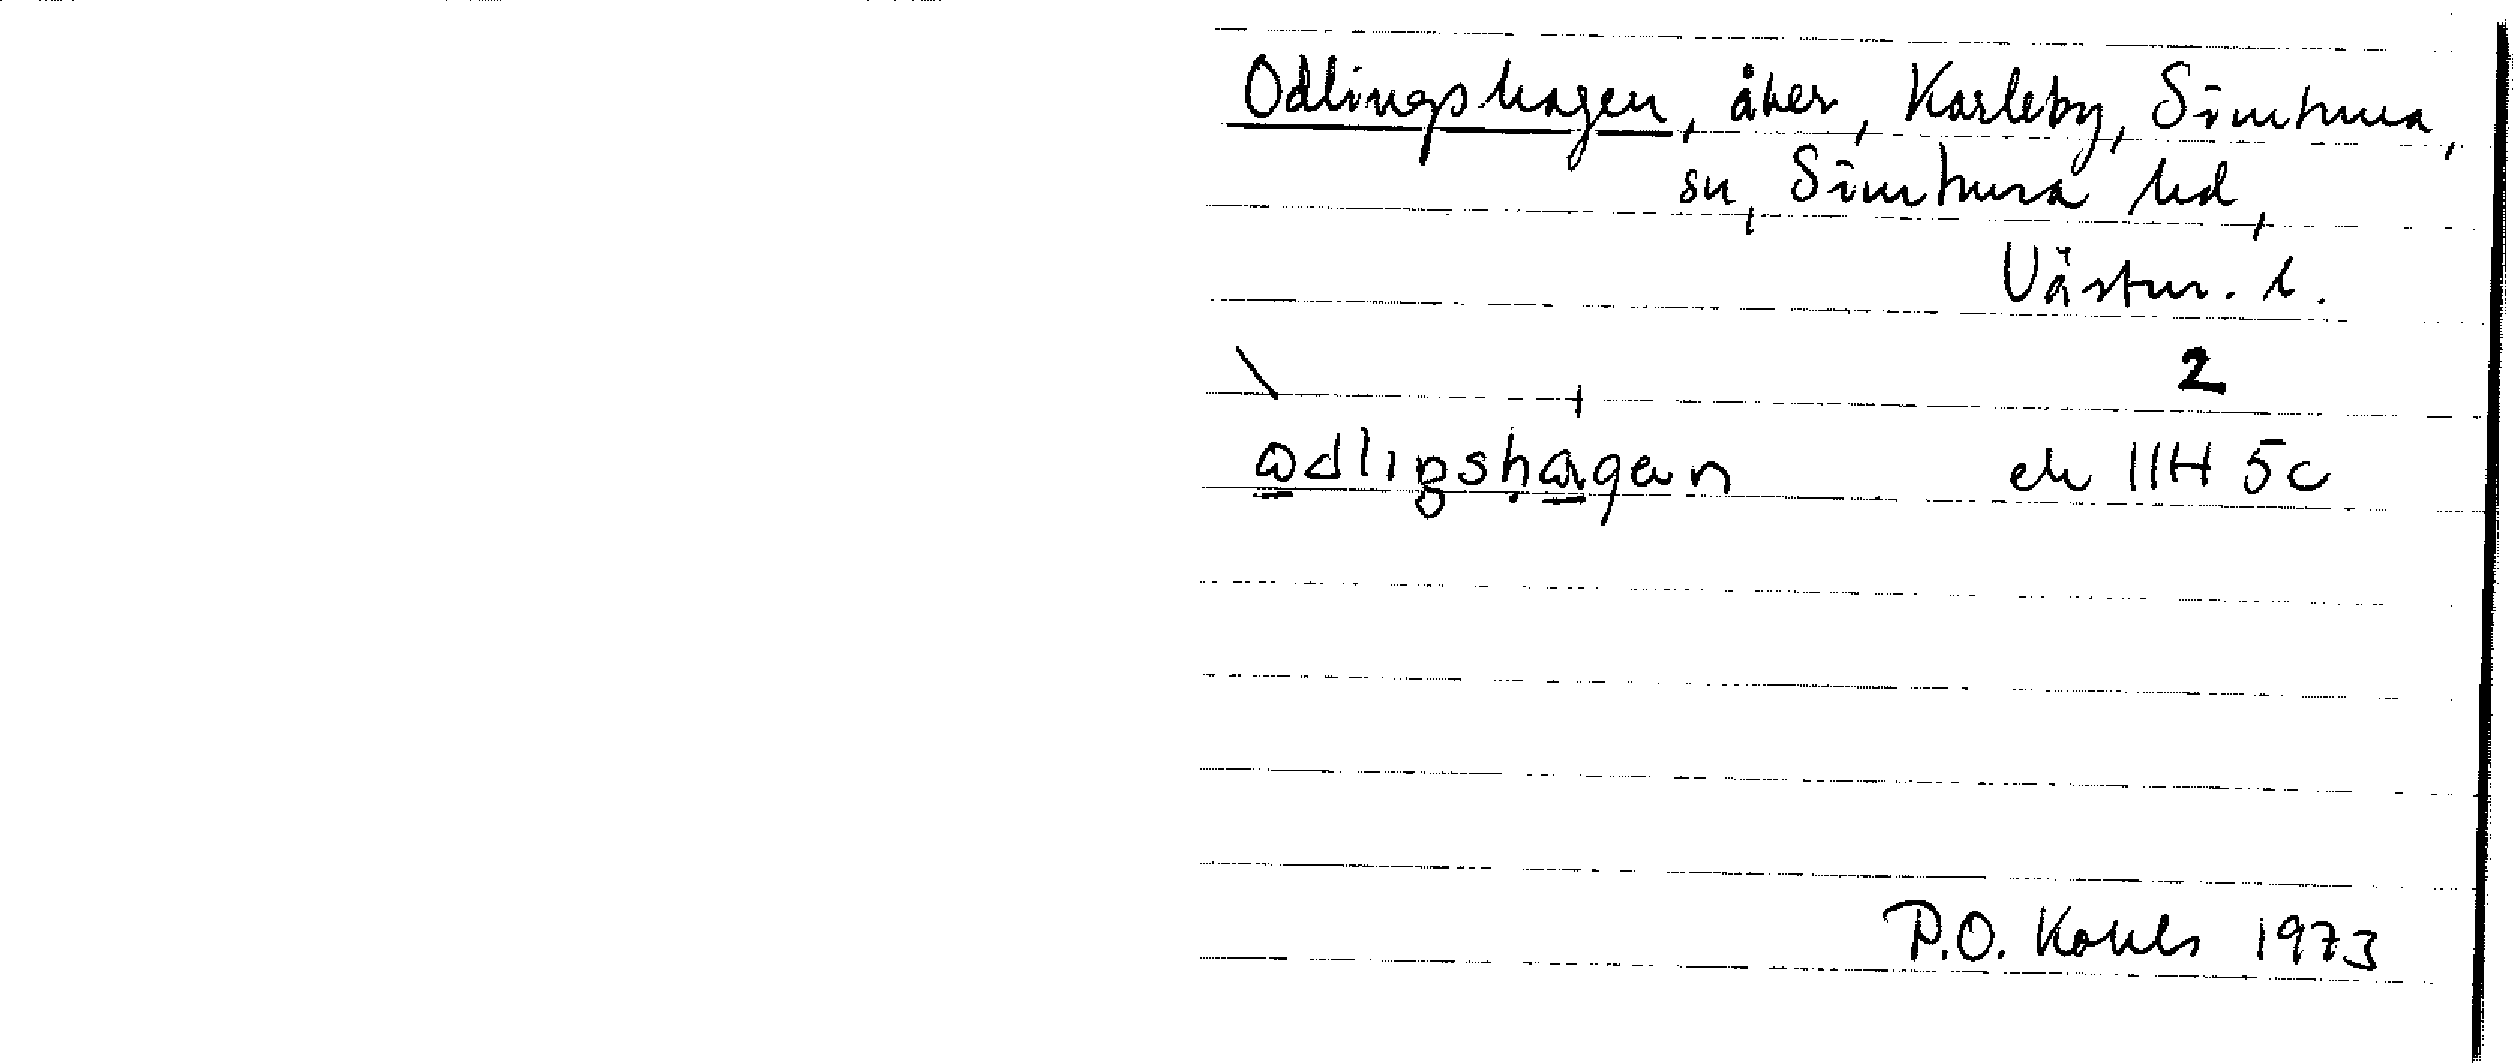 Odlingshagen, åker, Karleby, Simtuna,
sn, Simtuna hd,
Västm. l.
2
ek 11H 5c
P.O. Kohls 1973